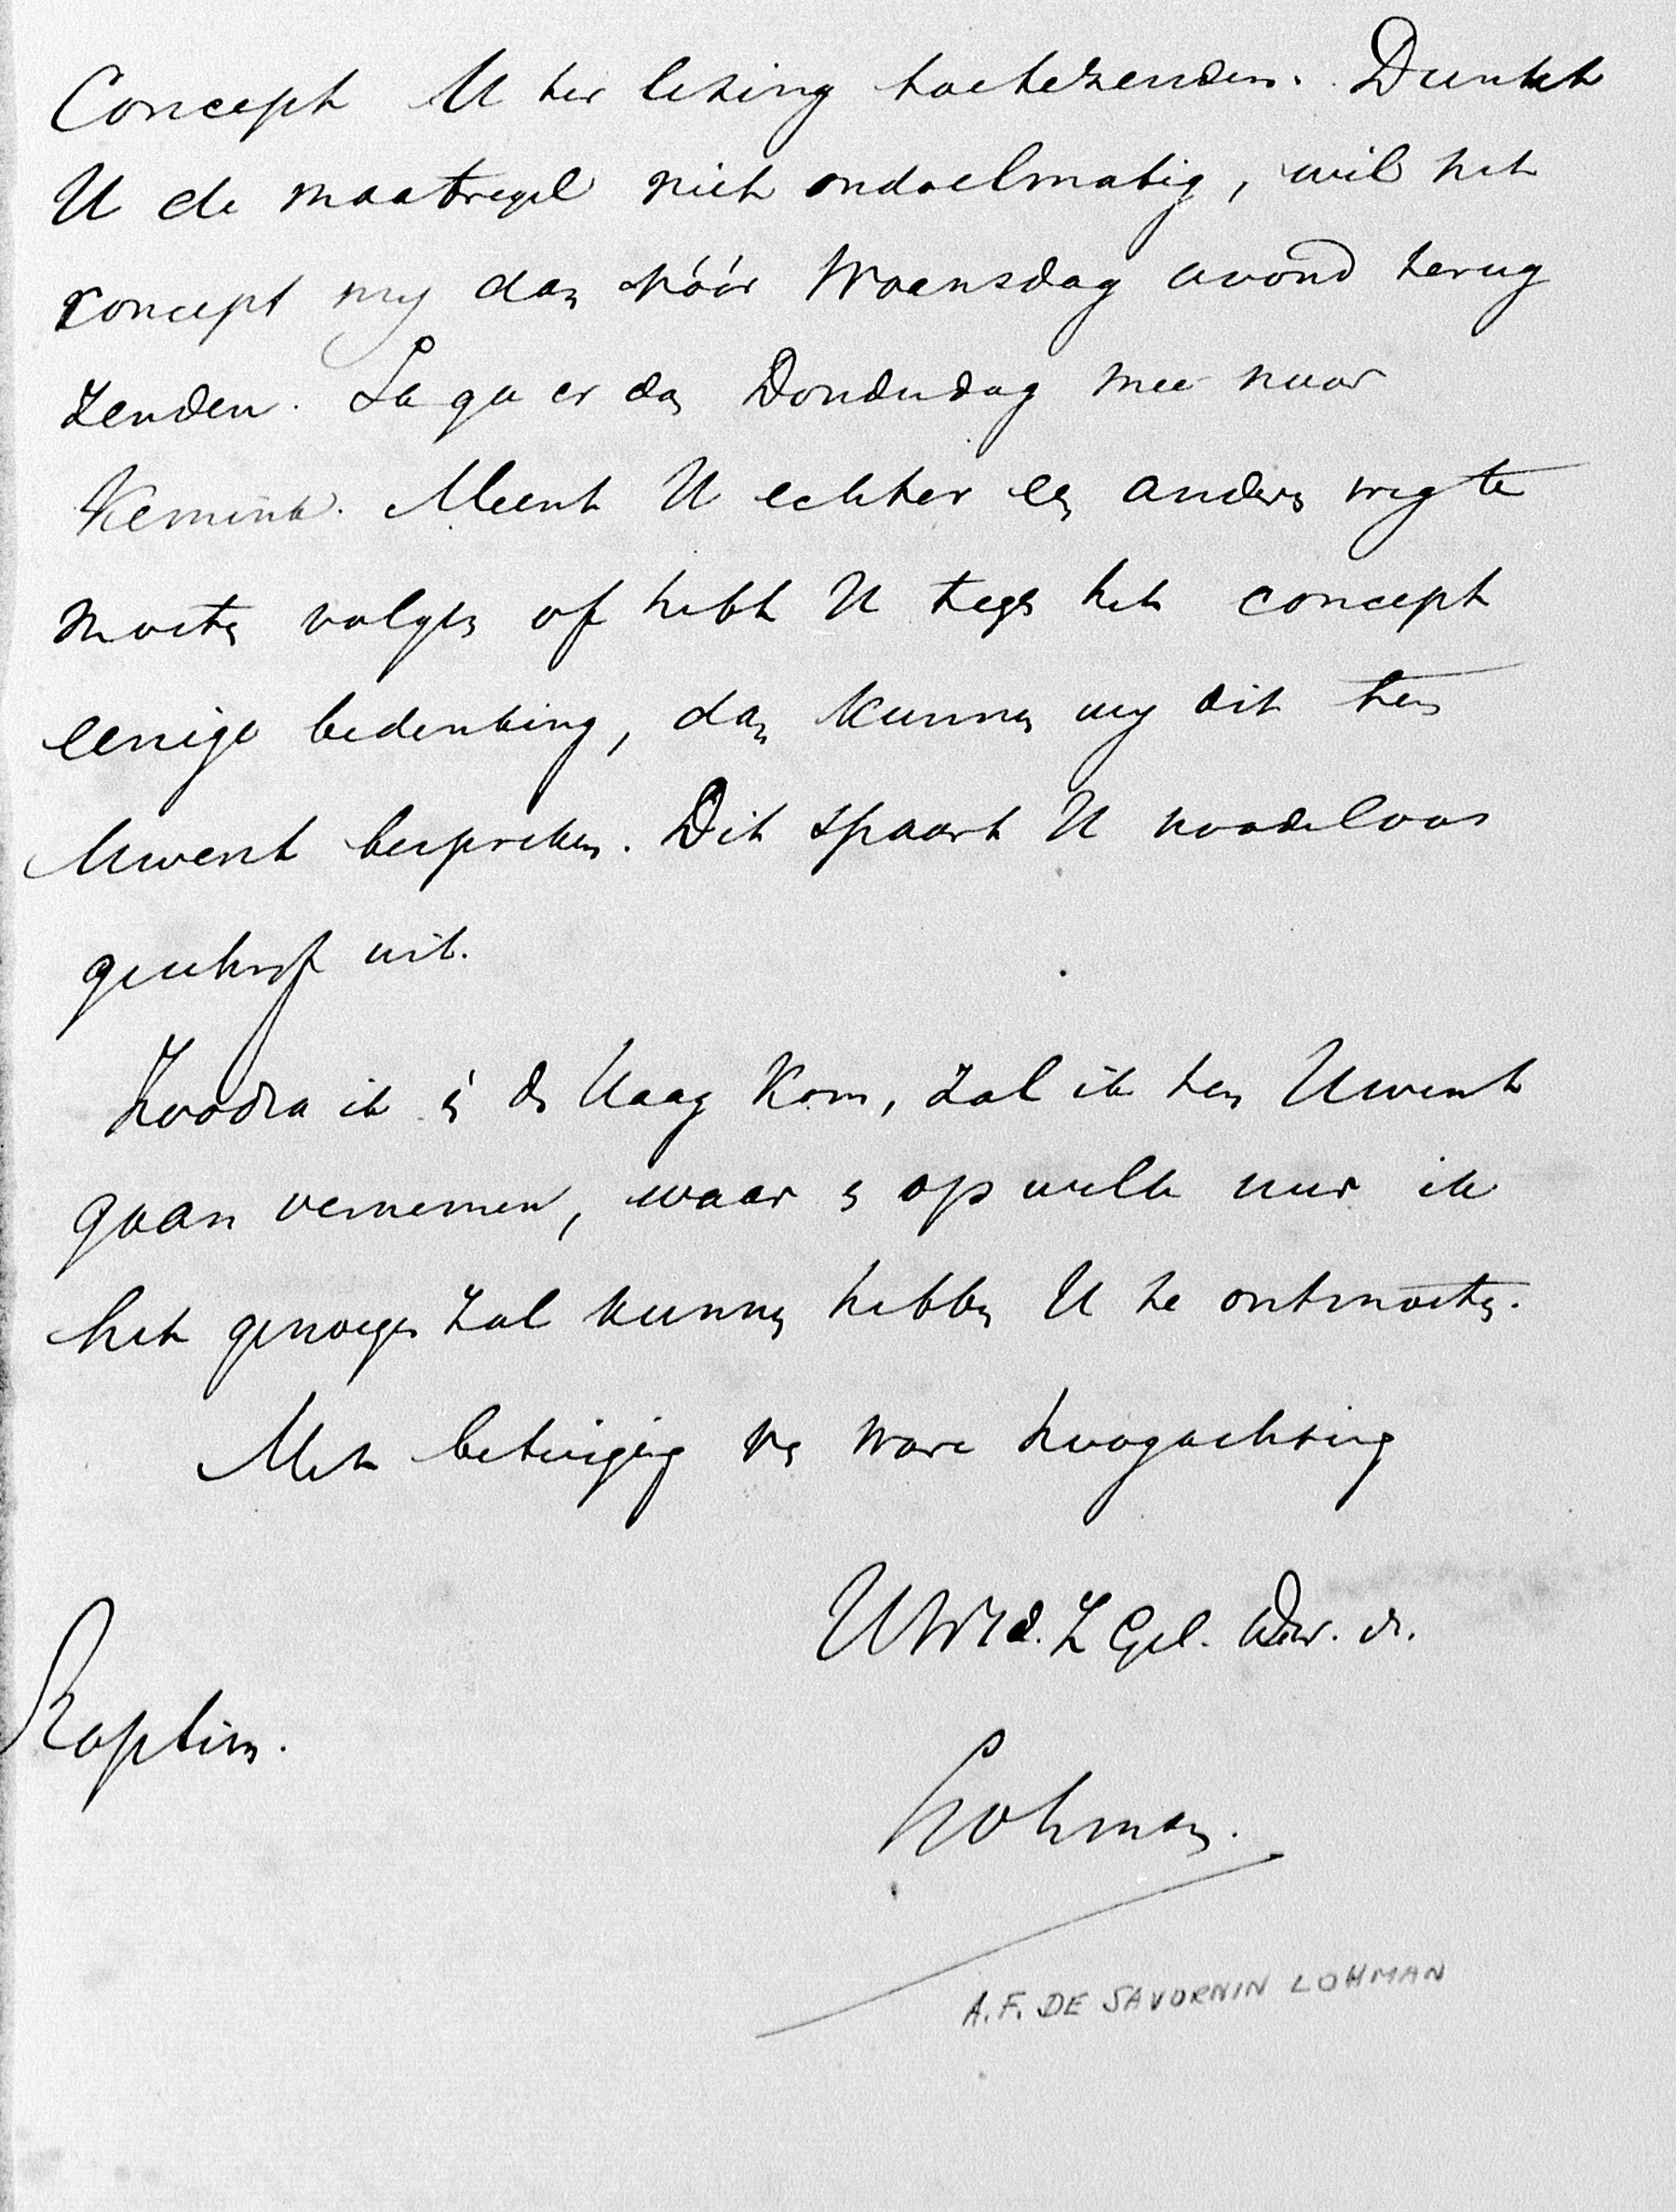 Concept U ter lezing toetezenden. Dunkt
U de maatregel niet ondoelmatig, wil het
concept my dan vóór Woensdag avond terug
zenden. Ik ga er dan Donderdag mee naar
Kemink. Meent U echter een andere weg te
moeten volgen of hebt U tegen het concept
eenige bedenking, dan kunnen wy dit ten
Uwent bespreken. Dit spaart U noodeloos
geschryf uit.
Zoodra ik in den Haag kom, zal ik ten Uwent
gaan vernemen, waar en op welk uur ik
het genoegen zal kunnen hebben U te ontmoeten.
Met betuiging van ware hoogachting
UWEd. Z Gel. Dw. dr.
Raptim.
Lohman.
A.F. DE SAVORNIN LOHMAN